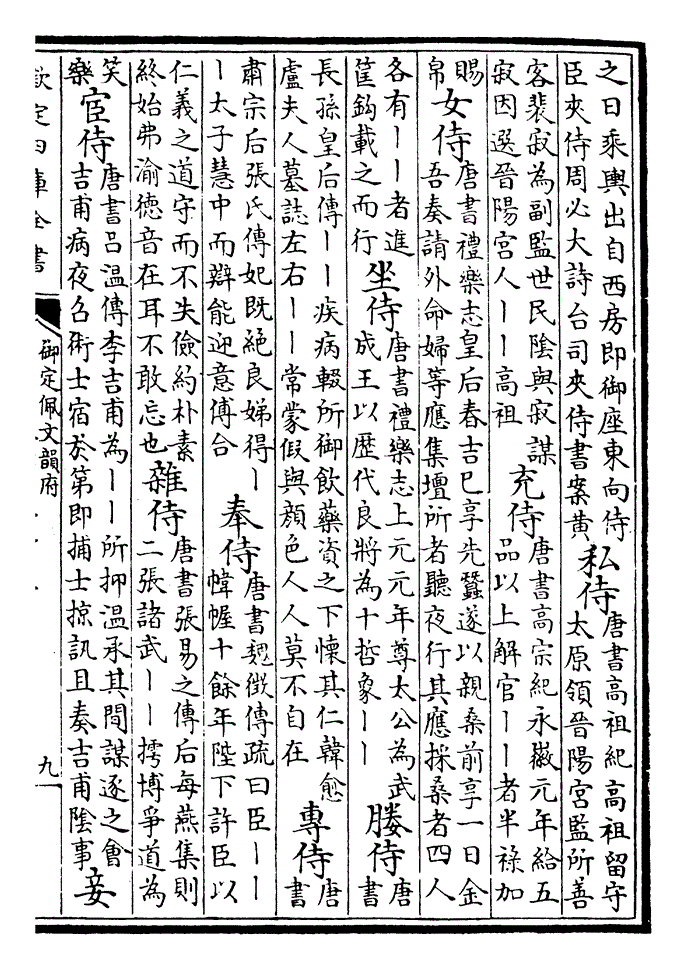 之日乘輿出自西房即御座東向侍
臣夾侍周必大詩台司夾侍書案黃
私侍
唐書高祖紀高祖留守
太原領晉陽宮監所善
客裴寂為副監世民陰與寂謀
寂因選晉陽宮人丨丨高祖
充侍
唐書高宗紀永徽元年給五
品以上解官丨丨者半祿加
賜
帛
女侍
唐書禮樂志皇后春吉巳享先蠶遂以親桑前享一日金
吾奏請外命婦等應集壇所者聽夜行其應採桑者四人
各有丨丨者進
筐鉤載之而行
坐侍
唐書禮樂志上元元年尊太公為武
成王以歷代良將為十哲象丨丨
媵侍
唐
書
長孫皇后傳丨丨疾病輟所御飲藥資之下懷其仁韓愈
盧夫人墓誌左右丨丨常蒙假與顏色人人莫不自在
專侍
唐
書
肅宗后張氏傳妃既絕良娣得丨
丨太子慧中而辯能迎意傅合
奉侍
唐書魏徵傳疏曰臣丨丨
幃幄十餘年陛下許臣以
仁義之道守而不失儉約朴素
終始弗渝德音在耳不敢忘也
雜侍
唐書張易之傳后每燕集則
二張諸武丨丨摴博爭道為
笑
樂
宦侍
唐書呂溫傳李吉甫為丨丨所抑溫承其間謀逐之會
吉甫病夜召術士宿於第即捕士掠訊且奏吉甫陰事
妾
欽定四庫全書
御定佩文韻府
九